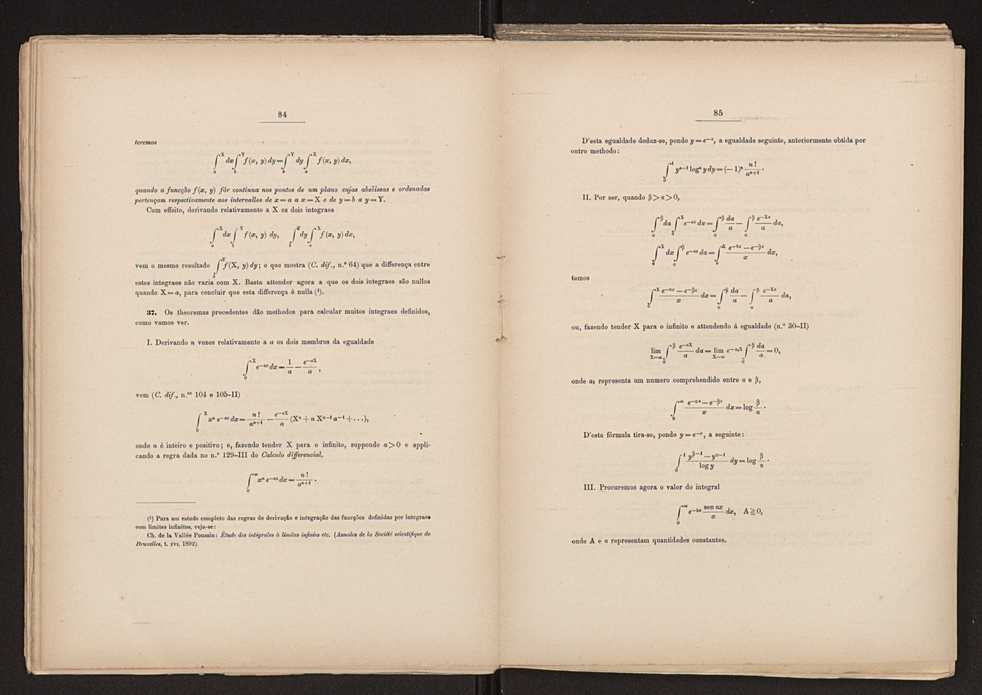 84
teremos
∫_a^X dx ∫_b^Y f(x, y) dy = ∫_b^Y dy ∫_a^X f(x, y) dx,
quando a funcção f(x, y) fôr continua nos pontos de um plano cujas abcissas e ordenadas
pertençam respectivamente aos intervallos de x = a a x = X e de y = b a y = Y.
Com effeito, derivando relativamente a X os dois integraes
∫_a^X dx ∫_b^Y f(x, y) dy, ∫_b^Y dy ∫_a^X f(x, y) dx,
vem o mesmo resultado ∫_b^Y f(X, y) dy; o que mostra (C. dif., n.º 64) que a differença entre
estes integraes não varia com X. Basta attender agora a que os dois integraes são nullos
quando X = a, para concluir que esta differença é nulla (¹).
37. Os theoremas precedentes dão methodos para calcular muitos integraes definidos,
como vamos ver.
I. Derivando n vezes relativamente a a os dois membros da egualdade
∫_0^X e^{-ax} dx = 1/a − e^{-aX}/a ,
vem (C. dif., n.os 104 e 105-II)
∫_0^X x^n e^{-ax} dx = n!/a^{n+1} − e^{-aX}/a (X^n + n X^{n-1} a^{-1} + . . .),
onde n é inteiro e positivo; e, fazendo tender X para o infinito, suppondo a > 0 e appli-
cando a regra dada no n.º 129-III do Calculo differencial,
∫_0^∞ x^n e^{-ax} dx = n!/a^{n+1} .
(¹) Para um estudo completo das regras de derivação e integração das funcções definidas por integraes
com limites infinitos, veja-se:
Ch. de la Vallée Poussin: Étude des intégrales à limites infinies etc. (Annales de la Société scientifique de
Bruxelles, t. xvi, 1892).
85
D'esta egualdade deduz-se, pondo y = e^{-x}, a egualdade seguinte, anteriormente obtida por
outro methodo:
∫_0^1 y^{a-1} log^n y dy = (−1)^n n!/a^{n+1} .
II. Por ser, quando β > α > 0,
∫_α^β da ∫_0^X e^{-ax} dx = ∫_α^β da/a − ∫_α^β e^{-Xa}/a da,
∫_0^X dx ∫_α^β e^{-ax} da = ∫_0^X (e^{-αx} − e^{-βx})/x dx,
temos
∫_0^X (e^{-αx} − e^{-βx})/x dx = ∫_α^β da/a − ∫_α^β e^{-Xa}/a da,
ou, fazendo tender X para o infinito e attendendo á egualdade (n.º 30-II)
lim_{X=∞} ∫_α^β e^{-aX}/a da = lim_{X=∞} e^{-a₁X} ∫_α^β da/a = 0,
onde a₁ representa um numero comprehendido entre α e β,
∫_0^∞ (e^{-αx} − e^{-βx})/x dx = log β/α .
D'esta fórmula tira-se, pondo y = e^{-x}, a seguinte:
∫_0^1 (y^{β-1} − y^{α-1})/log y dy = log β/α .
III. Procuremos agora o valor do integral
∫_0^∞ e^{-kx} sen ax/x dx, A ≧ 0,
onde A e a representam quantidades constantes.